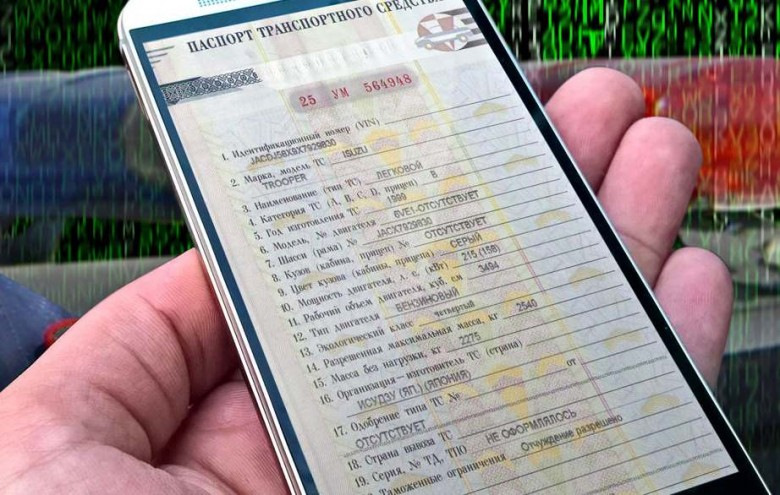 ПАСПОРТ ТРАНСПОРТНОГО СРЕДСТВА
25 УМ 564948
1. Идентификационный номер (VIN)
JACDJ58X9X7929830
2. Марка, модель ТС ISUZU
TROOPER
3. Наименование (тип ТС) ЛЕГКОВОЙ
4. Категория ТС (A, B, C, D, прицеп) B
5. Год изготовления ТС 1999
6. Модель, № двигателя 6VE1-ОТСУТСТВУЕТ
7. Шасси (рама) № JACX7929830
8. Кузов (кабина, прицеп) № ОТСУТСТВУЕТ
9. Цвет кузова (кабины, прицепа) СЕРЫЙ
10. Мощность двигателя, л. с. (кВт) 215 (158)
11. Рабочий объем двигателя, куб. см 3494
12. Тип двигателя БЕНЗИНОВЫЙ
13. Экологический класс четвертый
14. Разрешенная максимальная масса, кг 2540
15. Масса без нагрузки, кг 2275
16. Организация – изготовитель ТС (страна)
ИСУДЗУ (ЯП.) (ЯПОНИЯ)
17. Одобрение типа ТС № от
ОТСУТСТВУЕТ
18. Страна вывоза ТС
19. Серия, № ТД, ТПО НЕ ОФОРМЛЯЛОСЬ
Таможенные ограничения Отчуждение разрешено